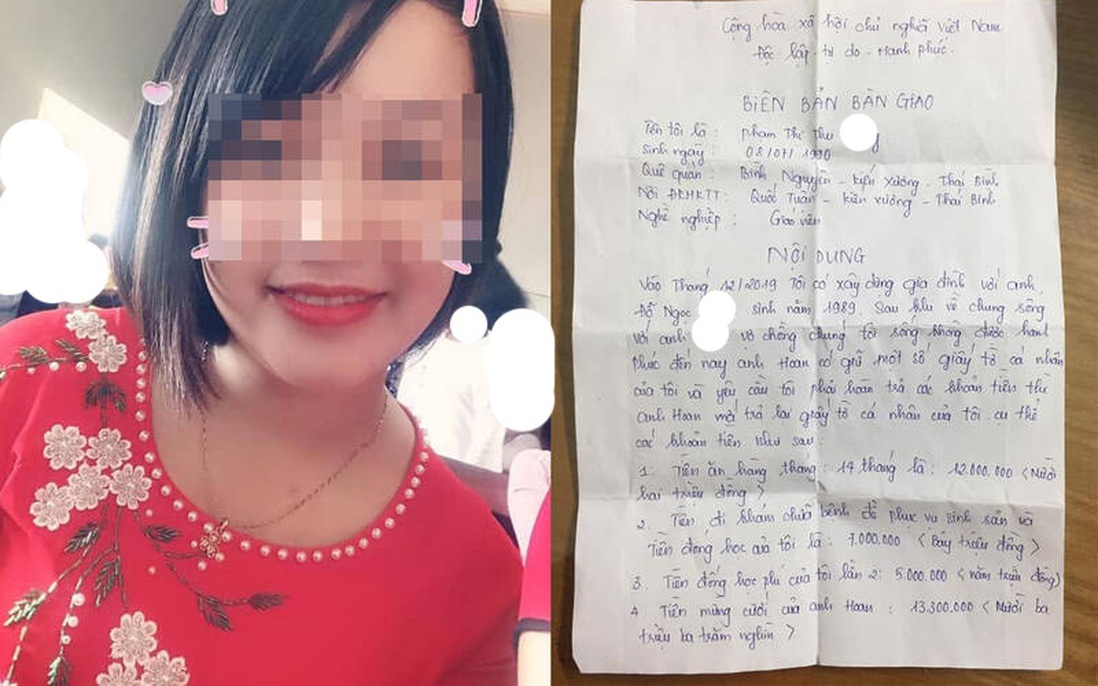 Cộng hòa xã hội chủ nghĩa Việt Nam
Độc lập - tự do - Hạnh phúc.
BIÊN BẢN BÀN GIAO
Tên tôi là : Phạm Thị Thu
Sinh ngày : 08/07/1990
Quê quán : Bình Nguyên - Kiến Xương - Thái Bình
Nơi ĐKHKTT: Quốc Tuấn - Kiến Xương - Thái Bình
Nghề nghiệp : Giáo viên
NỘI DUNG
Vào Tháng 12/2019 Tôi có xây dựng gia đình với anh
Đỗ Ngọc sinh năm 1989. Sau khi về chung sống
với anh vợ chồng chúng tôi sống không được hạnh
phúc đến nay anh Hoan có giữ một số giấy tờ cá nhân
của tôi và yêu cầu tôi phải hoàn trả các khoản tiền thì
anh Hoan mới trả lại giấy tờ cá nhân của tôi cụ thể
các khoản tiền như sau :
1. Tiền ăn hàng tháng : 14 tháng là : 12.000.000 < Mười
hai triệu đồng >
2. Tiền đi khám chữa bệnh để phục vụ sinh sản và
Tiền đóng học của tôi là : 7.000.000 < bảy triệu đồng >
3. Tiền đóng học phí của tôi lần 2: 5.000.000 < năm triệu đồng>
4 Tiền mừng cưới của anh Hoan : 13.300.000 < Mười ba
triệu ba trăm nghìn >